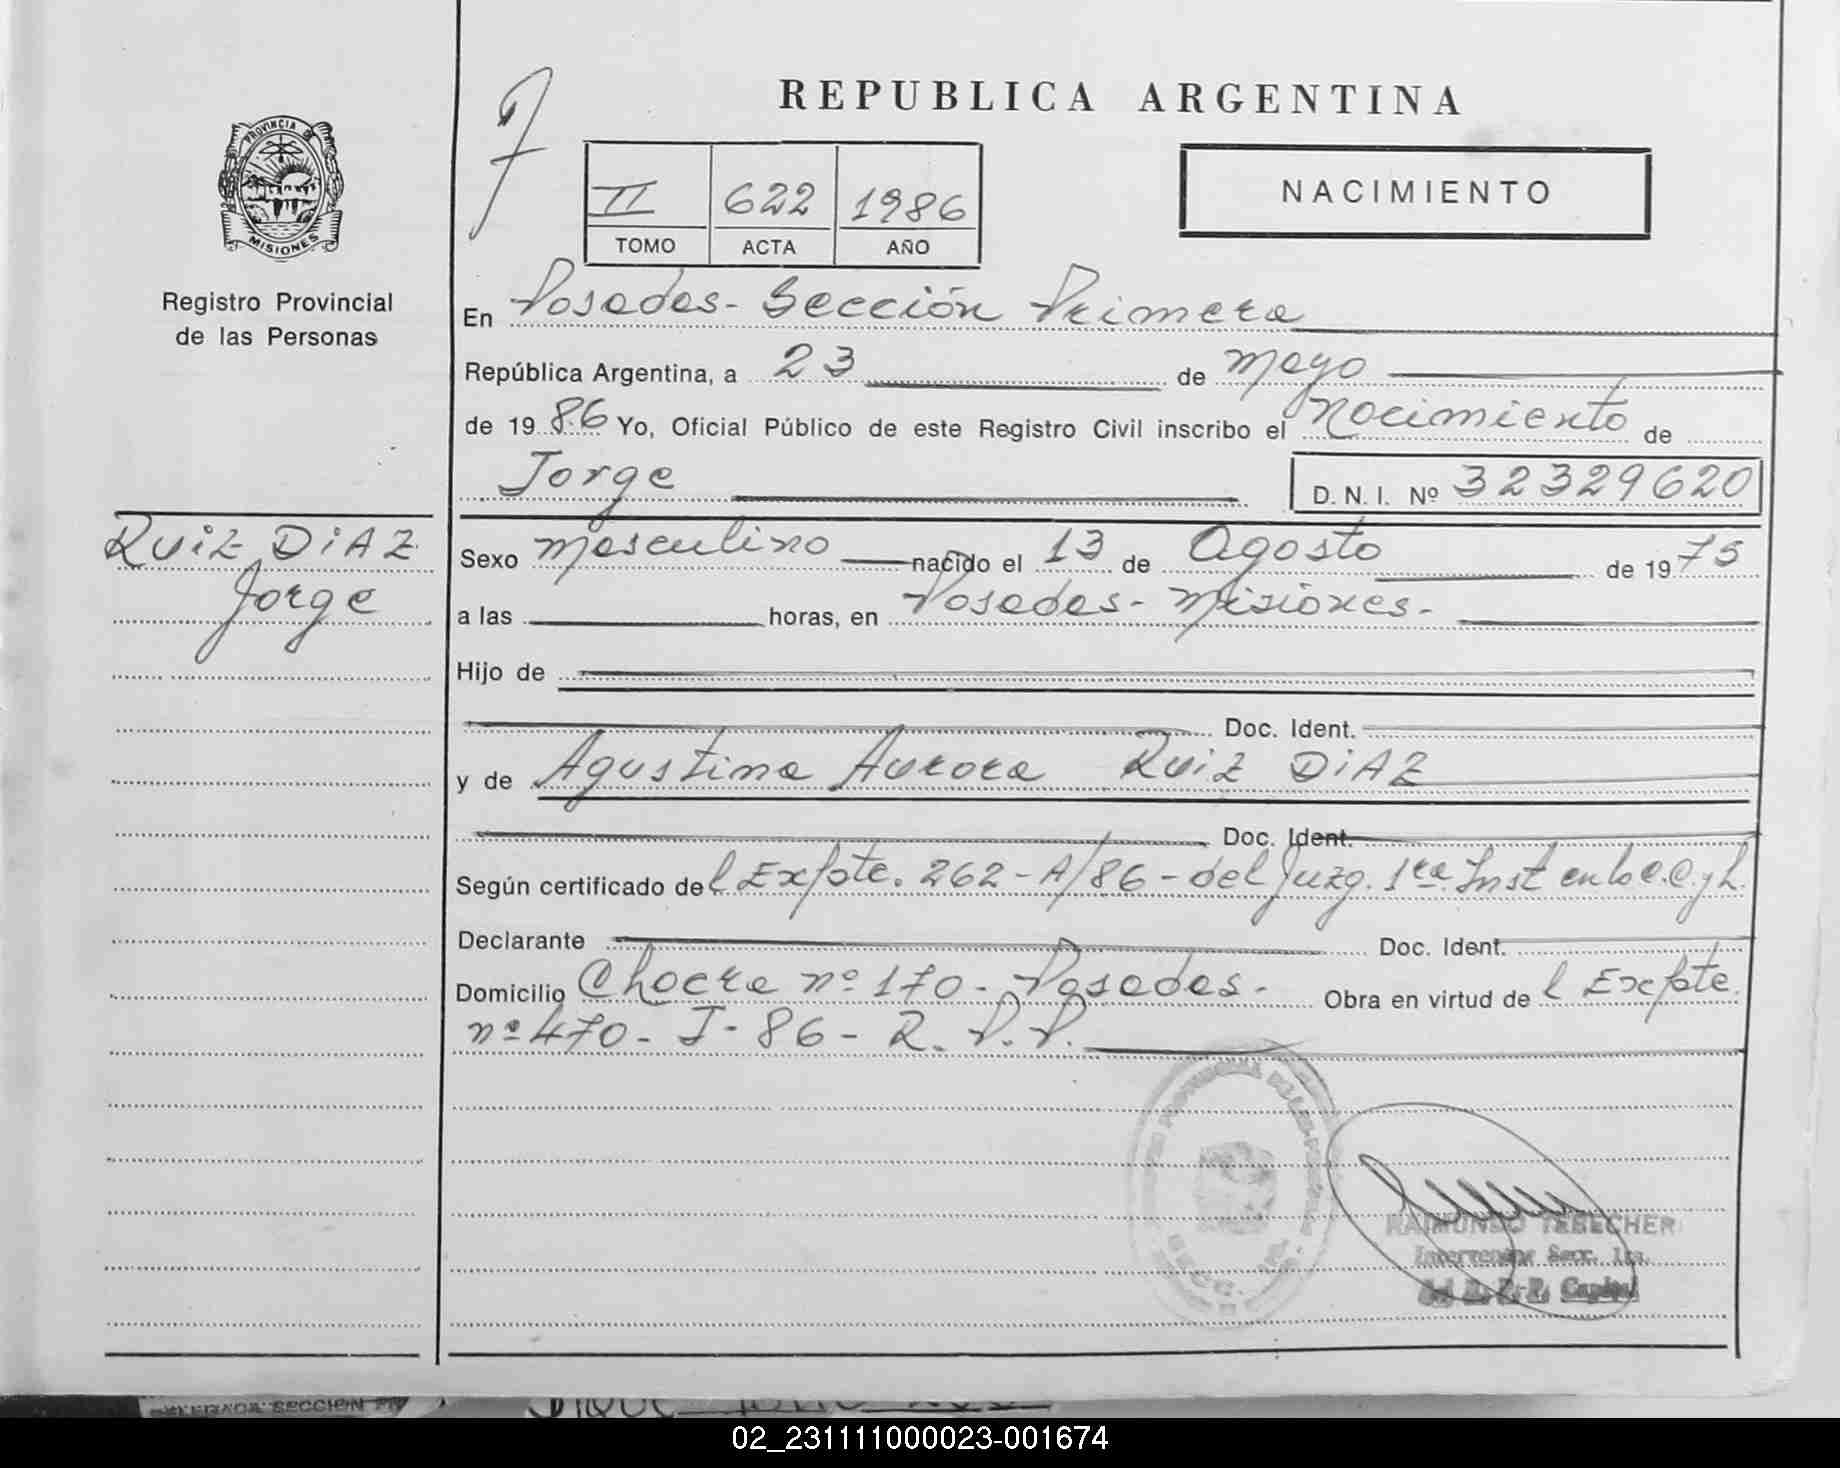 REPUBLICA ARGENTINA
PROVINCIA DE
MISIONES
Registro Provincial
de las Personas
II 622 1986
TOMO ACTA AÑO
NACIMIENTO
En Posadas- Sección Primera
República Argentina, a 23 de mayo
de 1986 Yo, Oficial Público de este Registro Civil inscribo el Nacimiento de
Jorge D. N. I. Nº 32329620
RUIZ DIAZ
Jorge
Sexo masculino nacido el 13 de Agosto de 1975
a las horas, en Posadas- Misiones.-
Hijo de
Doc. Ident.
y de Agustina Aurora RUIZ DIAZ
Doc. Ident.
Según certificado del Expte. 262-A/86-del Juzg. 1ra. Inst en lo C.C. y L.
Declarante Doc. Ident.
Domicilio Chacra nº 170- Posadas.- Obra en virtud del Expte.
nº 470- J- 86- R. P. P.
RAIMUNDO TEBECHER
Interventor Secc. 1ra.
del R. P. P. Capital
SECCION
02_231111000023-001674